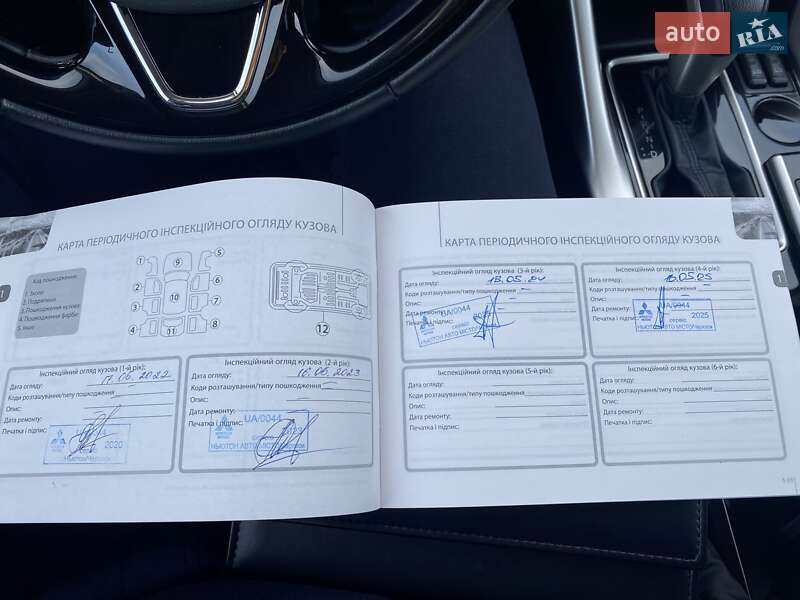 auto RIA
КАРТА ПЕРІОДИЧНОГО ІНСПЕКЦІЙНОГО ОГЛЯДУ КУЗОВА
Код пошкодження:
1. Сколи
2. Подряпини
3. Пошкодження кузова
4. Пошкодження фарби
5. Інше
1
1 2 3 4 5 6 7 8 9 10 11
12
Інспекційний огляд кузова (1-й рік):
Дата огляду: 17.06.2022
Коди розташування/типу пошкодження
Опис:
Дата ремонту:
Печатка і підпис:
2020
Інспекційний огляд кузова (2-й рік):
Дата огляду: 16.06.2023
Коди розташування/типу пошкодження —
Опис:
Дата ремонту:
Печатка і підпис:
UA/0044
НЬЮТОН АВТО МІСТО
КАРТА ПЕРІОДИЧНОГО ІНСПЕКЦІЙНОГО ОГЛЯДУ КУЗОВА
1
Інспекційний огляд кузова (3-й рік):
Дата огляду:
Коди розташування/типу пошкодження —
Опис: —
Дата ремонту:
Печатка і підпис:
UA/0044
сервіс
НЬЮТОН АВТО МІСТО
Інспекційний огляд кузова (4-й рік):
Дата огляду: 18.05.05
Коди розташування/типу пошкодження —
Опис: —
Дата ремонту:
Печатка і підпис:
UA/0044
сервіс 2025
НЬЮТОН АВТО МІСТО
Інспекційний огляд кузова (5-й рік):
Дата огляду:
Коди розташування/типу пошкодження
Опис:
Дата ремонту:
Печатка і підпис:
Інспекційний огляд кузова (6-й рік):
Дата огляду:
Коди розташування/типу пошкодження
Опис:
Дата ремонту:
Печатка і підпис: